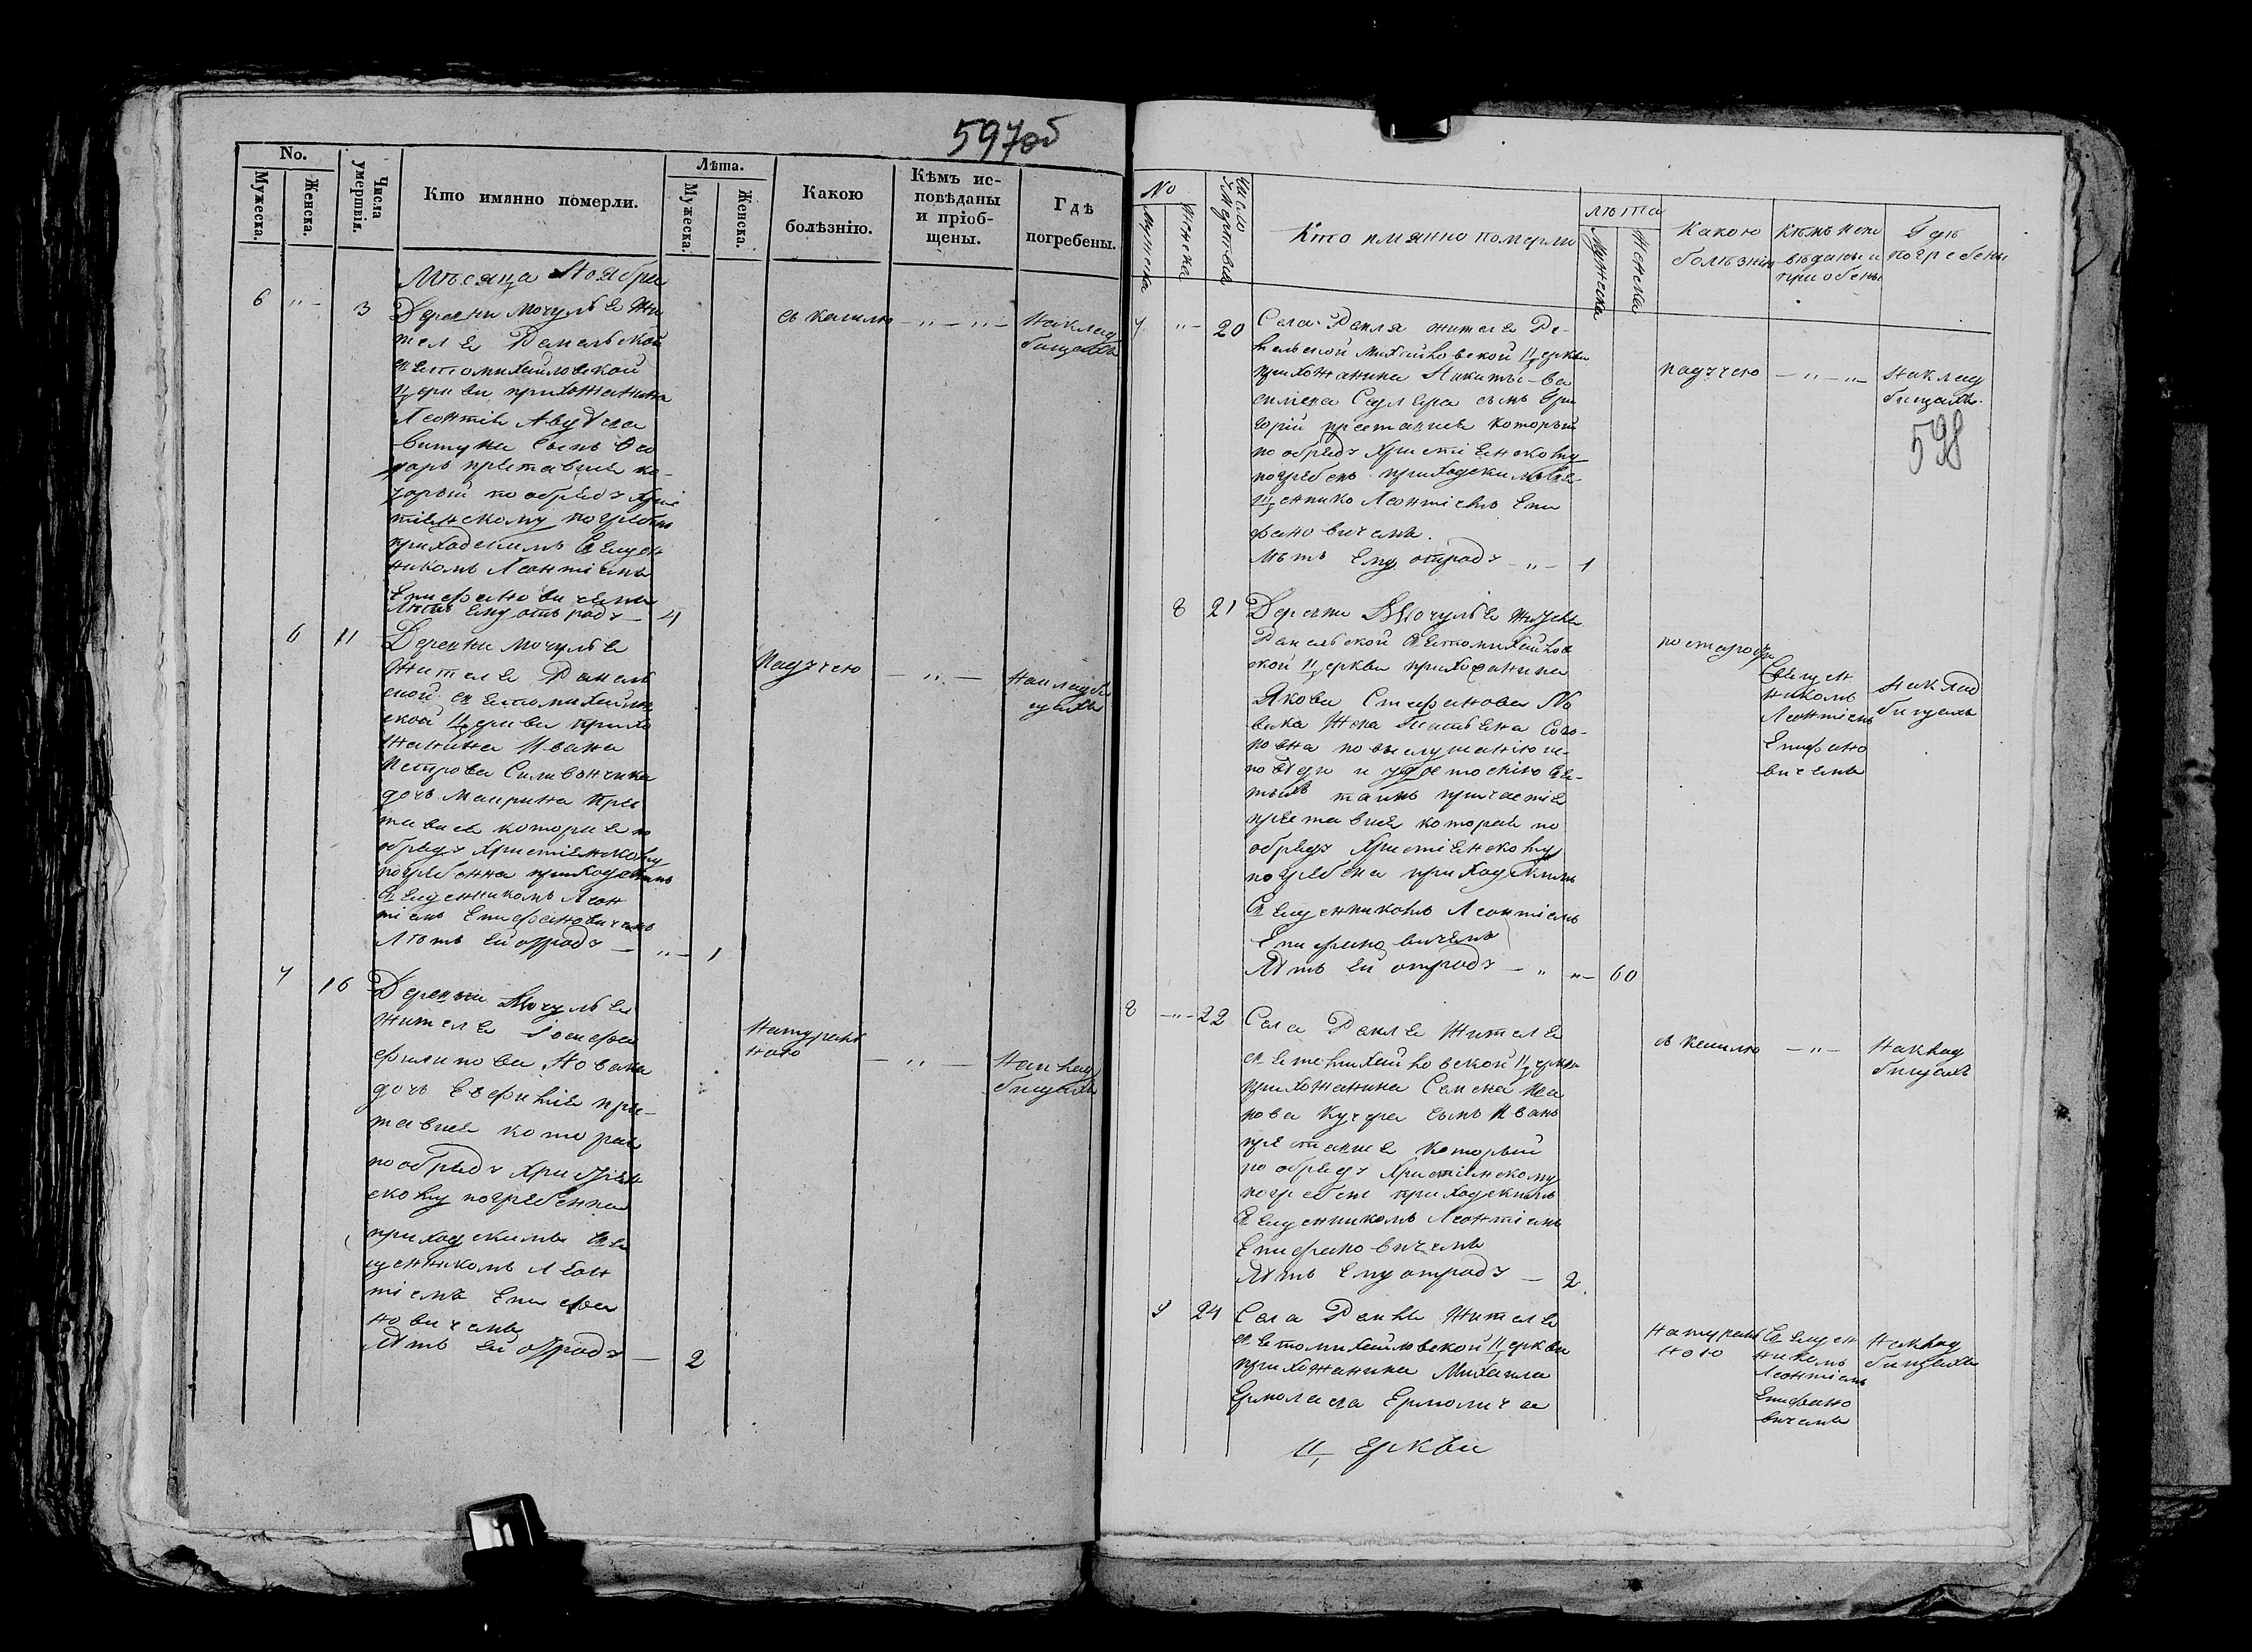 597об
No.
Мужеска.
Женска.
Числа умертвія.
Кто имянно померли.
Лѣта.
Мужеска.
Женска.
Какою
болѣзнію.
Кѣмъ ис-
повѣданы
и пріоб-
щены.
Гдѣ
погребены.
Месяца Ноября
6 " 3
Деревни Мочулье жи
теле
церкви прихожанина
Леонтія
сынъ
преставися ко-
торый по обряду Хрис
тіянскому погребенъ
приходскимъ священ
никомъ Леонтіемъ
Епифановичемъ
Летъ ему отъ роду — 4
съ кашлю — " — " —
на клад
бищахъ
6 11
Деревни Мочулье
Жителе
церкви прихо
жанина Ивана
Петрова
дочь Марина пре
тависе которае по
обряду Христіянскому
погребенна приходскимъ
священникомъ Леон
тіемъ Епифановичемъ
Летъ ей отроду — " — 1
падучею — " —
на кладби
щахъ
7 16
Деревни Мочулье
жителе Іосифа
Филипова Новака
дочь Евфиміе пре-
тависе которае
по обряду Христіян
скому погребенна
приходскимъ све
щенникомъ Леон
тіемъ Епифа
новичемъ
Летъ ей отроду — 2
Натураль
ною — " —
на клад
бищахъ
No
Мужеска
Женска
Число умертвія
Кто имянно померли
лета
Мужеска
Женска
Какою
болезнію
Кемъ испо
веданы и
приобены
Где
погребены
7 " — 20
Села Рапля жителе Ра-
пельской Михайловской церкви
прихожанина
сынъ Гри
горій преставися который
по обряду Христіянскому
погребенъ приходскимъ све
щеннико Леонтіемъ Епи
фановичемъ.
Летъ ему отроду — " — 1
падучею — " — " —
на клад
бищахъ.
598
8 21
Деревни Мочулье
церкви
Якова Стефанова Но
вака жена Татьяна
по выслушанію ис-
поведи
таинъ причастіе
претависе которае по
обряду Христіянскому
погребена приходскимъ
священникомъ Леонтіемъ
Епифановичемъ
Летъ ей отроду — " " — 60
по старости
Священ
никомъ
Леонтіемъ
Епифано
вичемъ
на клад
бищахъ
8 — " — 22
Села Рапле Жителе
светомихайловской церкви
прихожанина Семена Ива
нова Кучера сынъ Иванъ
претависе который
по обряду Христіянскому
погребенъ приходскимъ
священникомъ Леонтіемъ
Епифановичемъ
Летъ ему отроду — 2.
съ кашлю — " —
на клад
бищахъ
9 24
Села Рапле Жителе
светомихайловской церкви
прихожанина Михаила
Ермолаева Ермолича
Натураль
ною
Священ
никомъ
Леонтіемъ
Епифано
вичемъ
на клад
бищахъ
церкви